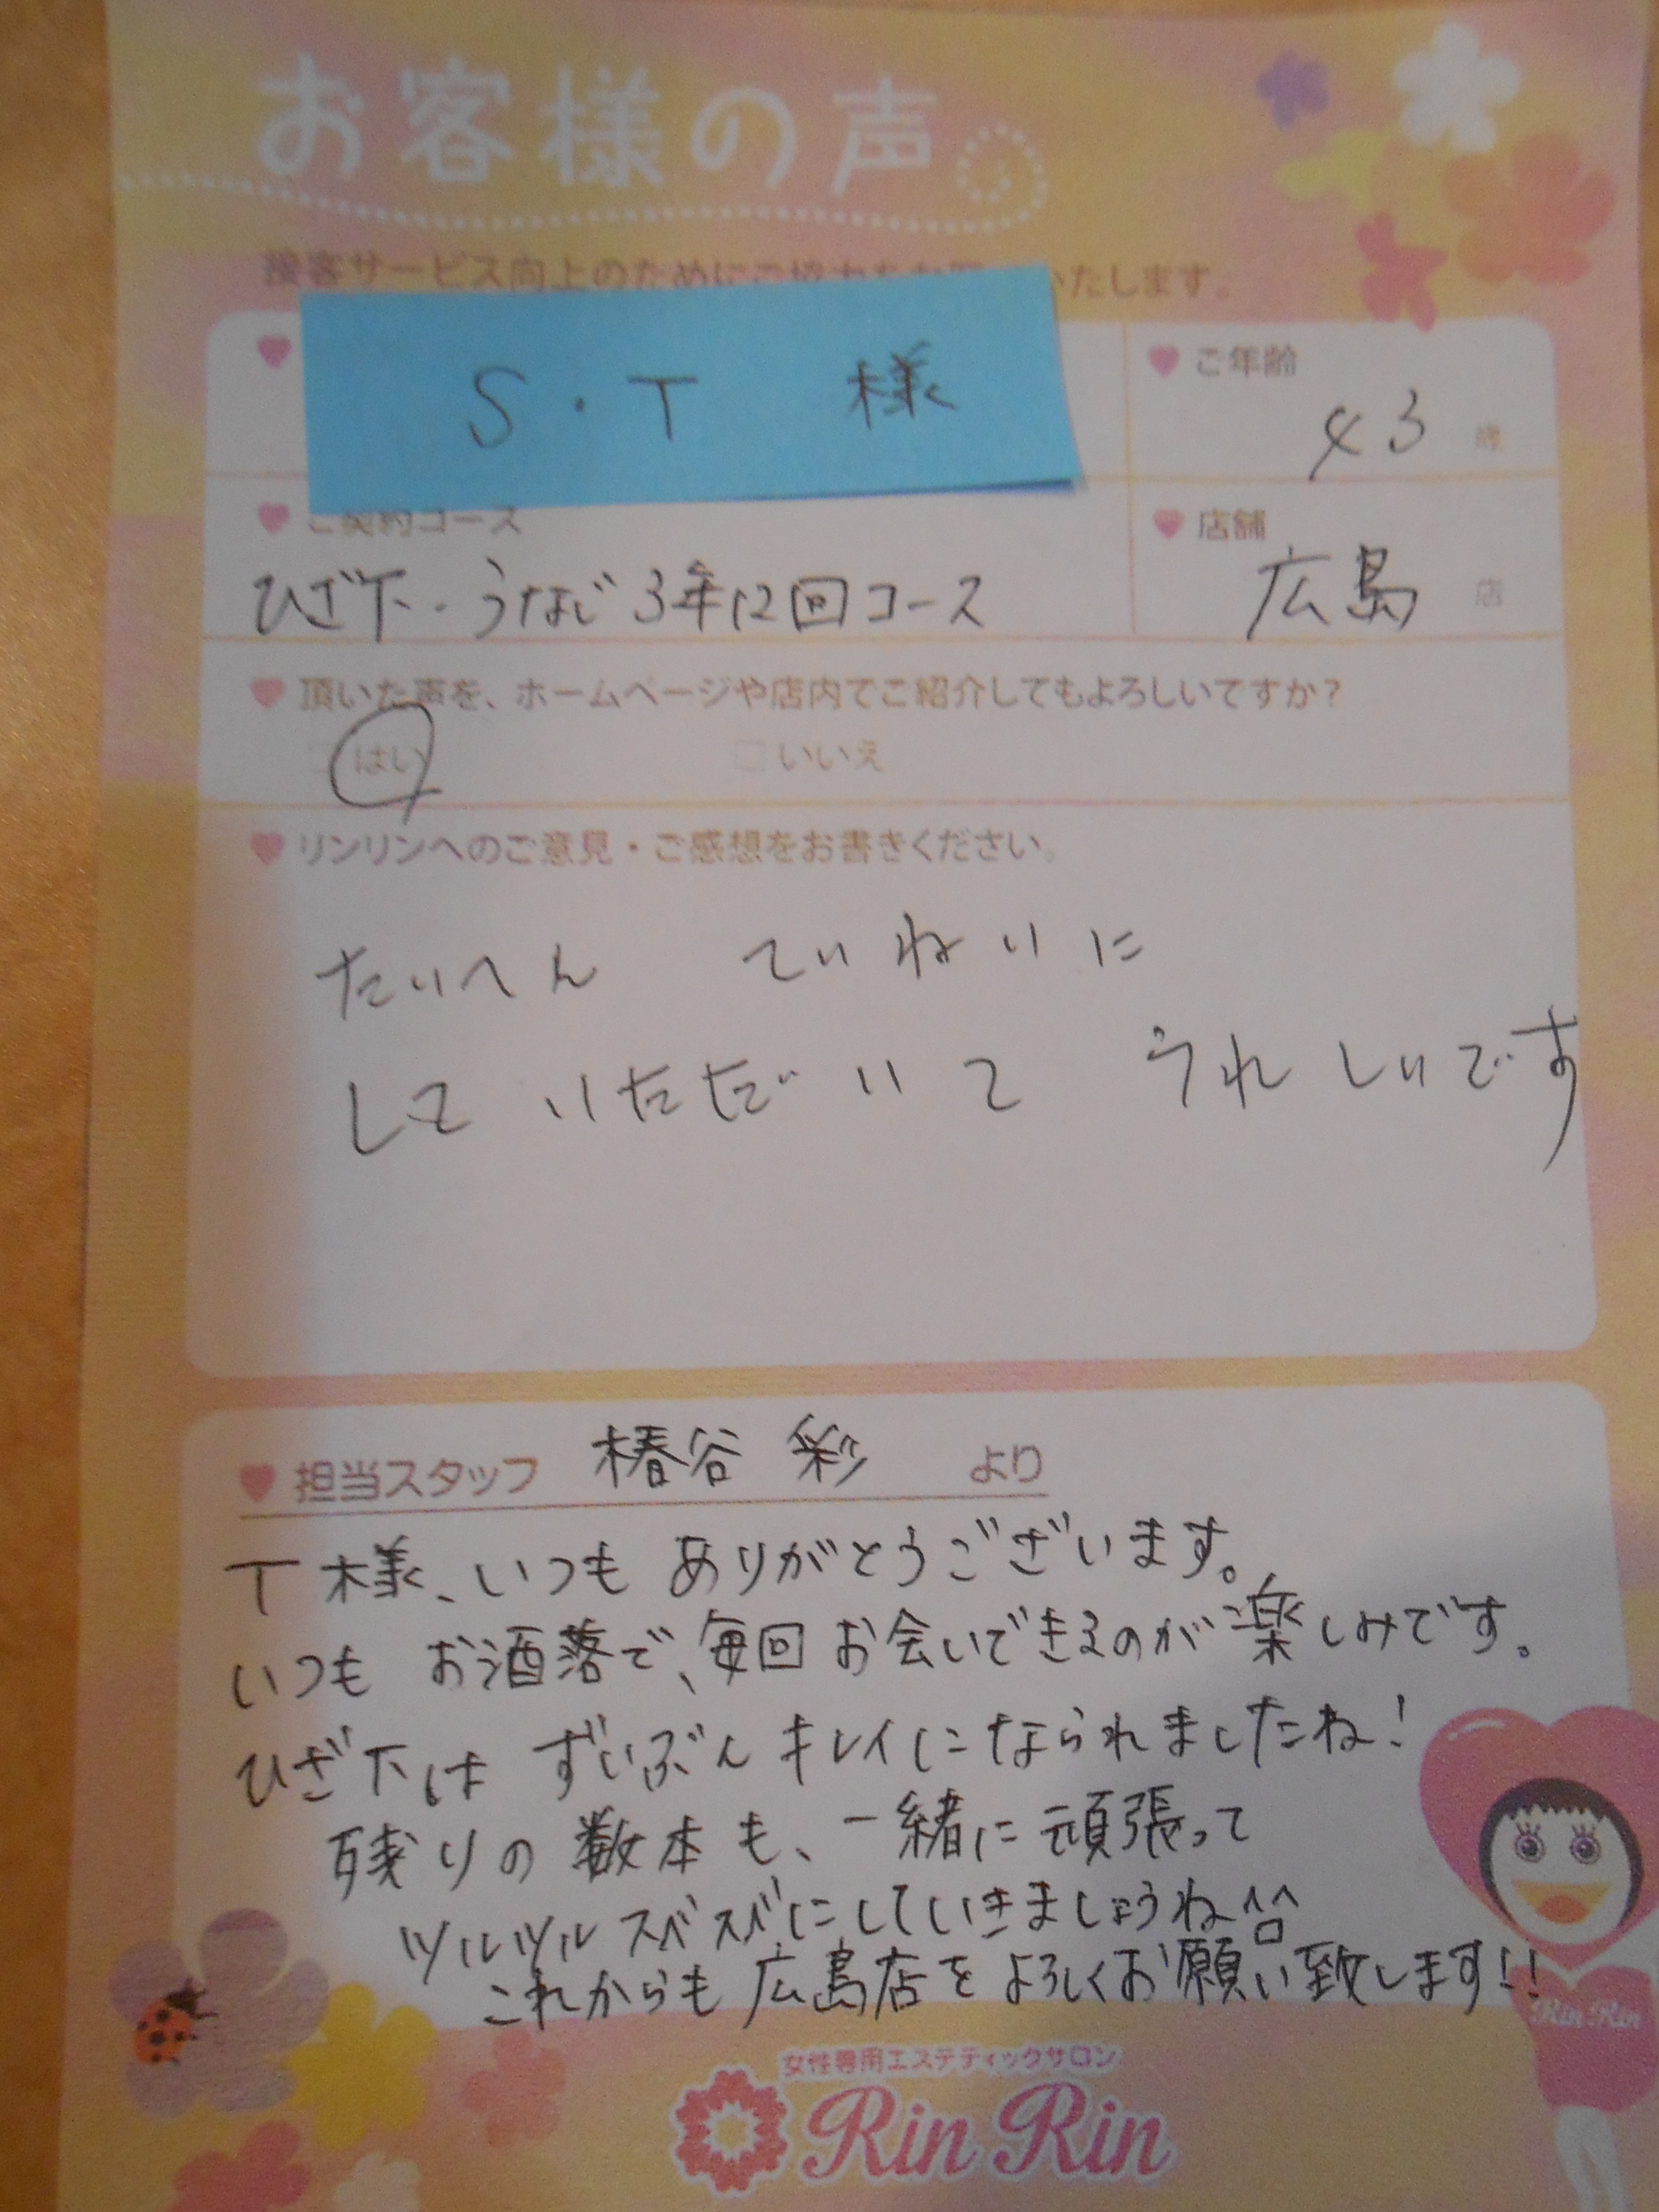 お客様の声
接客サービス向上のためにご協力をお いたします。
S・T 様
ご年齢
43 歳
ご契約コース
ひざ下・うなじ3年12回コース
店舗
広島 店
頂いた声を、ホームページや店内でご紹介してもよろしいですか？
はい いいえ
リンリンへのご意見・ご感想をお書きください。
たいへん ていねいに
して いただいて うれしいです
担当スタッフ 椿谷 彩 より
T様、いつも ありがとうございます。
いつも お洒落で、毎回 お会いできるのが楽しみです。
ひざ下は ずいぶん キレイになられましたね!
残りの数本も、一緒に頑張って
ツルツルスベスベにしていきましょうね^^
これからも 広島店を よろしくお願い致します!!
Rin Rin
女性専用エステティックサロン
Rin Rin